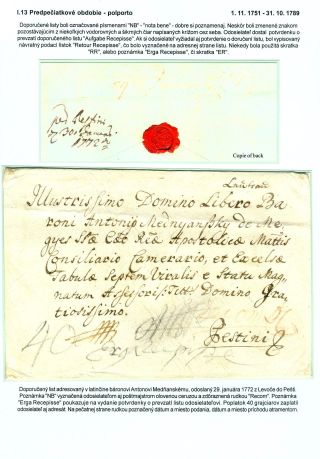 I.13 Predpečiatkové obdobie - polporto
1. 11. 1751 - 31. 10. 1789
Doporučené listy boli označované písmenami "NB" - "nota bene" - dobre si poznamenaj. Neskôr boli zmenené znakom
pozostávajúcim z niekoľkých vodorovných a šikmých čiar napísaných krížom cez seba. Odosielateľ dostal potvrdenku o
prevzatí doporučeného listu "Aufgabe Recepisse". Ak si odosielateľ vyžiadal aj potvrdenie o doručení listu, bol vypisovaný
návratný podací lístok "Retour Recepisse", čo bolo vyznačené na adresnej strane listu. Niekedy bola použitá skratka
"RR", alebo poznámka "Erga Recepisse", či skratka "ER".
1772
Copie of back
Illustrissimo Domino Libero Ba
roni Antonio Mednyanszky de Me
gyes Apostolicae Mattis
Consiliario Camerario, et Excelsae
Tabulae Septem Viralis e Statu Mag
natum Domino Gra
tiosissimo.
Pestini
Doporučený list adresovaný v latinčine barónovi Antonovi Medňanskému, odoslaný 29. januára 1772 z Levoče do Pešti.
Poznámka "NB" vyznačená odosielateľom aj poštmajstrom olovenou ceruzou a zdôraznená rudkou "Recom". Poznámka
"Erga Recepisse" poukazuje na vydanie potvrdenky o prevzatí listu odosielateľovi. Poplatok 40 grajciarov zaplatil
odosielateľ aj adresát. Na pečatnej strane rudkou poznačený dátum a miesto podania, dátum a miesto príchodu atramentom.